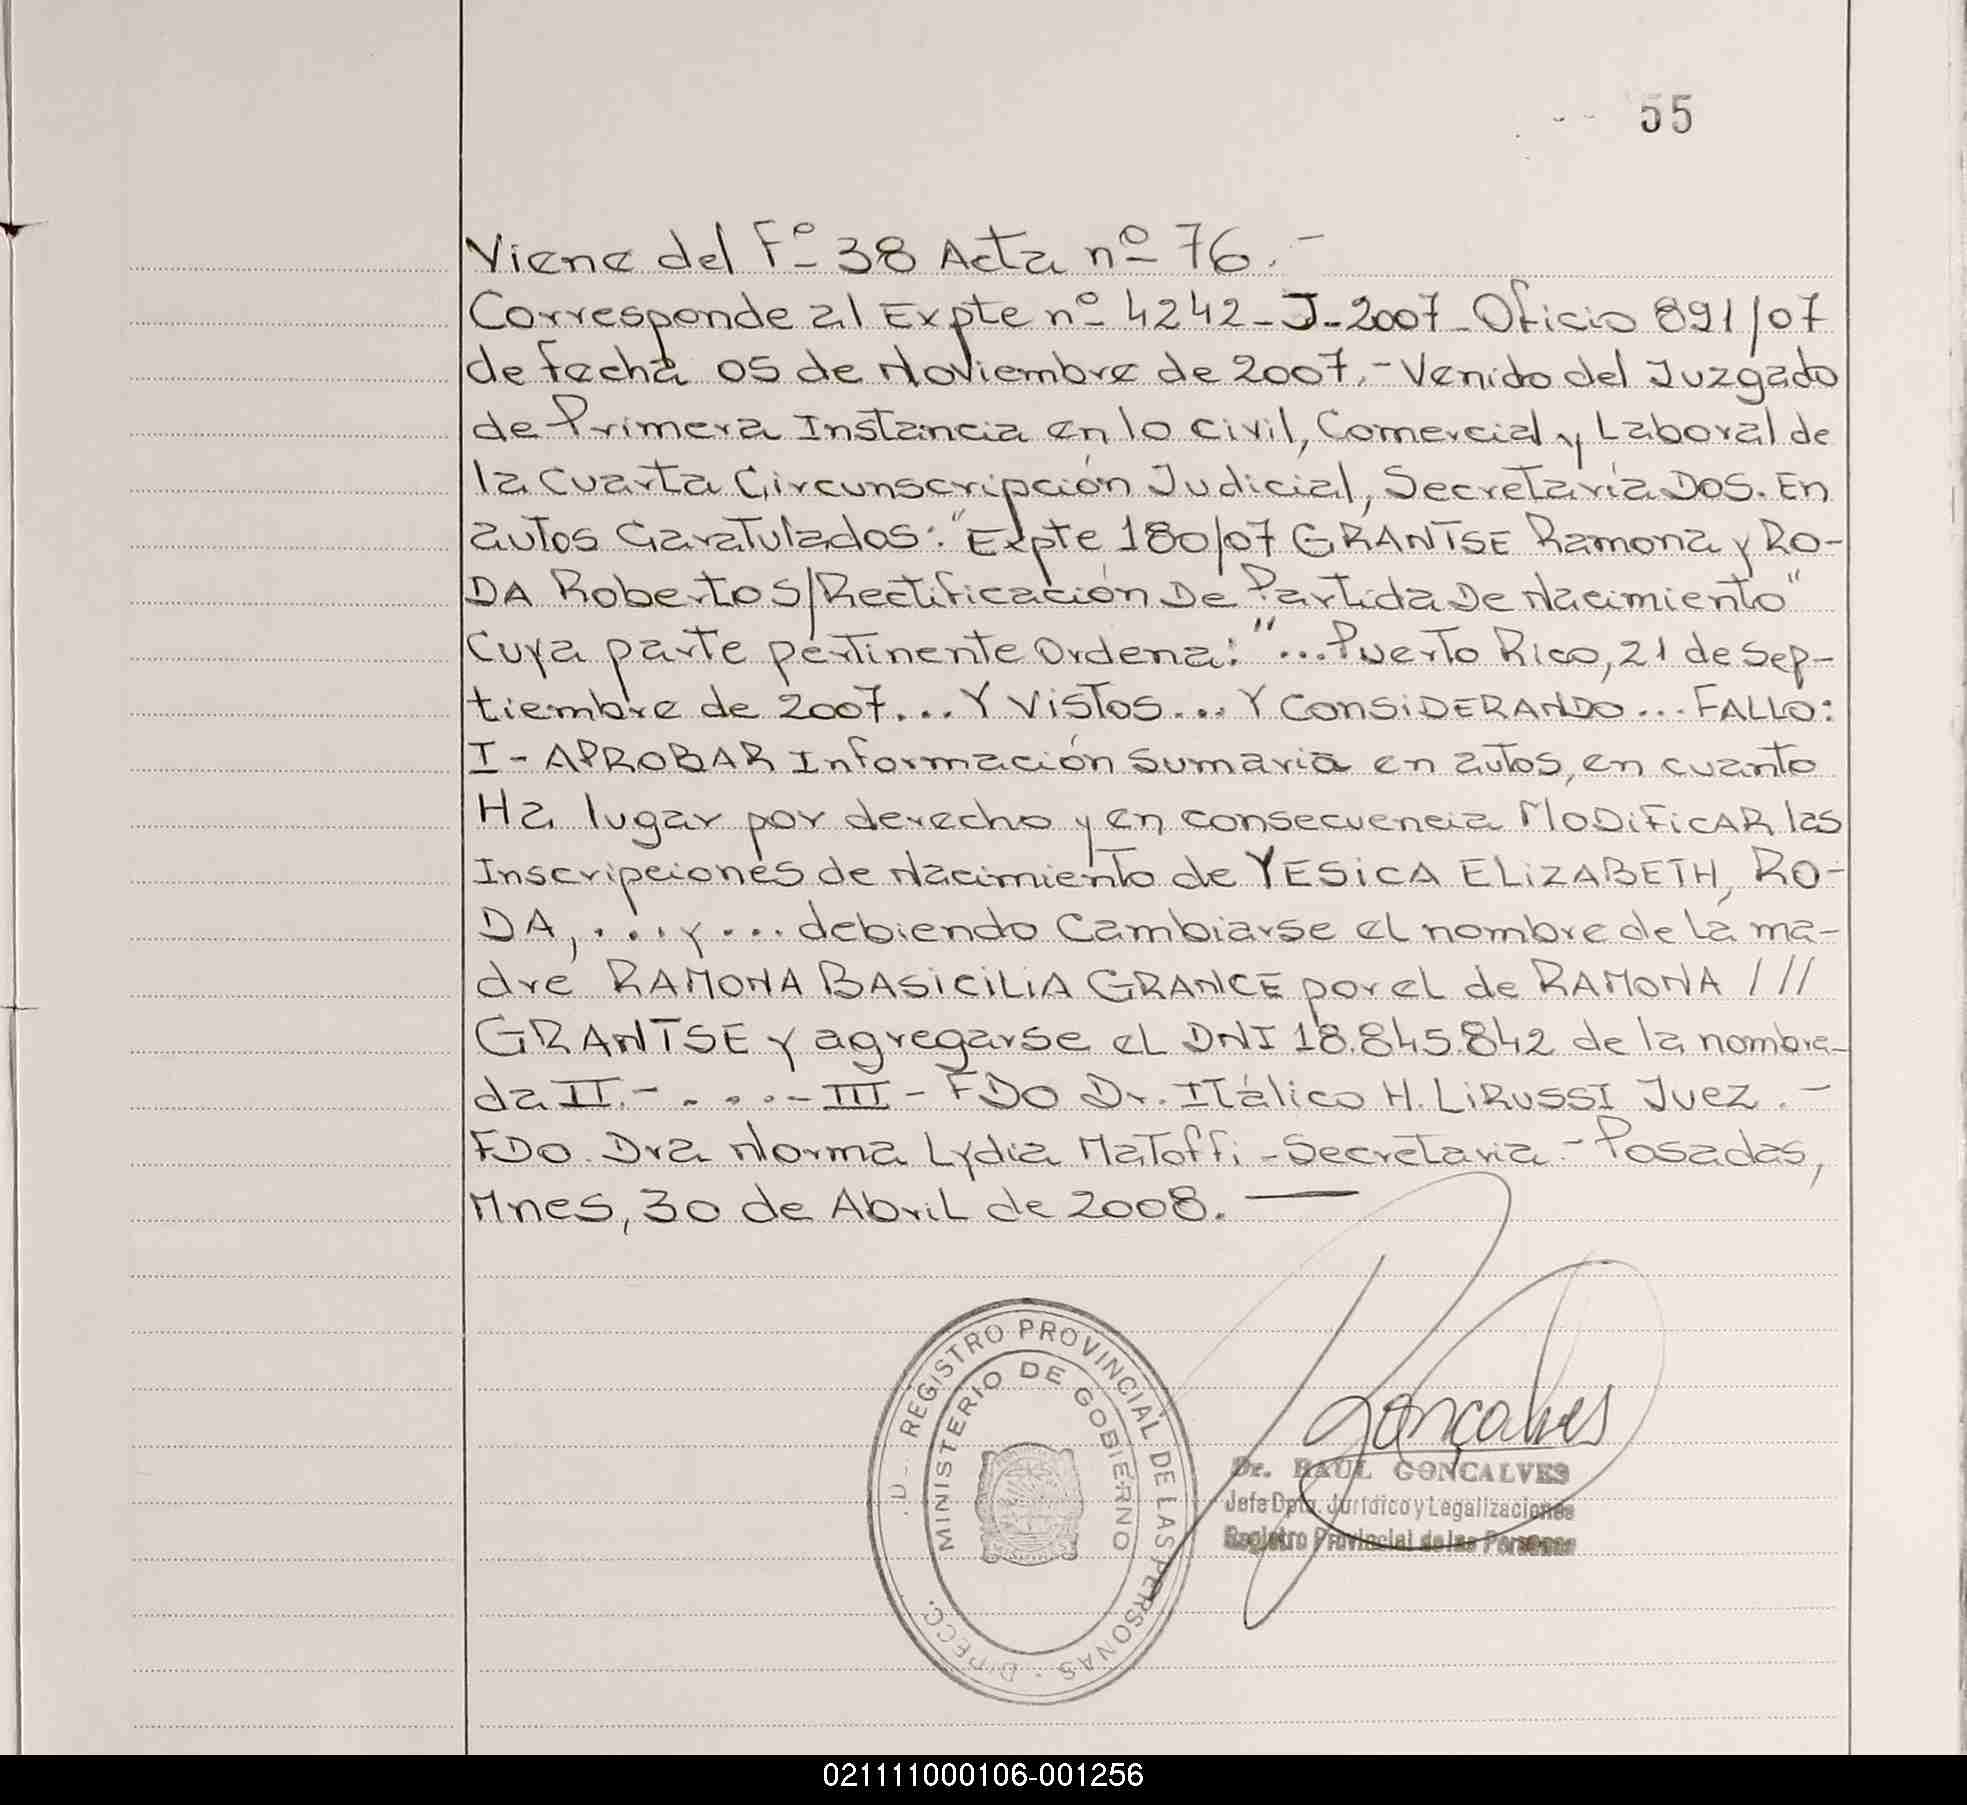 55
Viene del Fº 38 Acta nº 76.-
Corresponde al Expte nº 4242-J-2007-Oficio 891/07
de fecha 05 de Noviembre de 2007.- Venido del Juzgado
de Primera Instancia en lo civil, Comercial y Laboral de
la Cuarta Circunscripción Judicial, Secretaría DOS. En
autos Caratulados: "Expte 180/07 GRANTSE Ramona y RO-
DA Roberto S/Rectificación De Partida De Nacimiento"
Cuya parte pertinente Ordena: "...Puerto Rico, 21 de Sep-
tiembre de 2007...Y VISTOS...Y CONSIDERANDO...FALLO:
I - APROBAR Información Sumaria en autos, en cuanto
Ha lugar por derecho y en consecuencia MODIFICAR las
Inscripciones de Nacimiento de YESICA ELIZABETH, RO-
DA,....y...debiendo Cambiarse el nombre de La ma-
dre RAMONA BASICILIA GRANCE por el de RAMONA ///
GRANTSE y agregarse el DNI 18.845.842 de la nombra-
da II.-....-III- FDO Dr. Itálico H. LIRUSSI Juez.-
FDO. Dra Norma Lydia Matoffi-Secretaria-Posadas,
Mnes, 30 de Abril de 2008.
REGISTRO PROVINCIAL DE LAS PERSONAS
MINISTERIO DE GOBIERNO
Gonçalves
Dr. RAUL GONCALVES
Jefe Dpto. Jurídico y Legalizaciones
Registro Provincial de las Personas
021111000106-001256